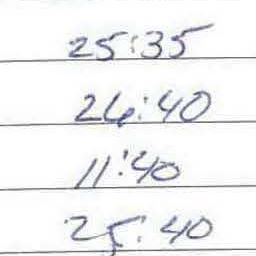 25:35
26:40
11:40
25:40